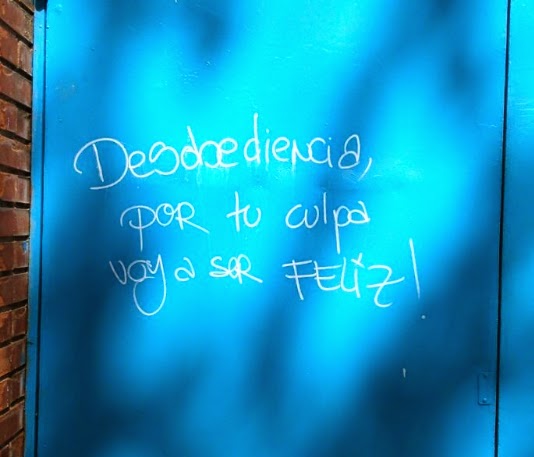 Desobediencia,
POR tu culpa
voy a ser FELiZ!